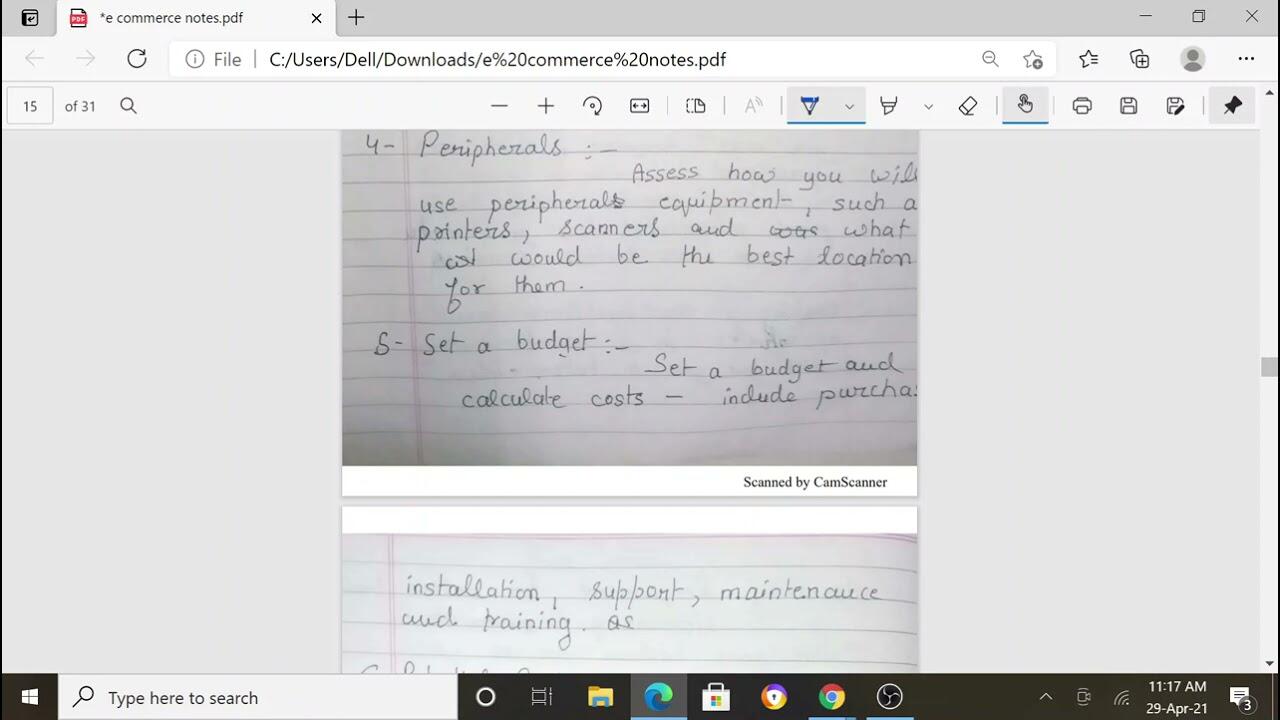 *e commerce notes.pdf
File C:/Users/Dell/Downloads/e%20commerce%20notes.pdf
15 of 31
4- Peripherals :-
Assess how you will
use peripherals equipment, such a
printers, scanners and what
would be the best location
for them.
5- Set a budget :-
Set a budget and
calculate costs - include purcha
Scanned by CamScanner
installation, support, maintenance
and training. as
Type here to search
11:17 AM
29-Apr-21
3